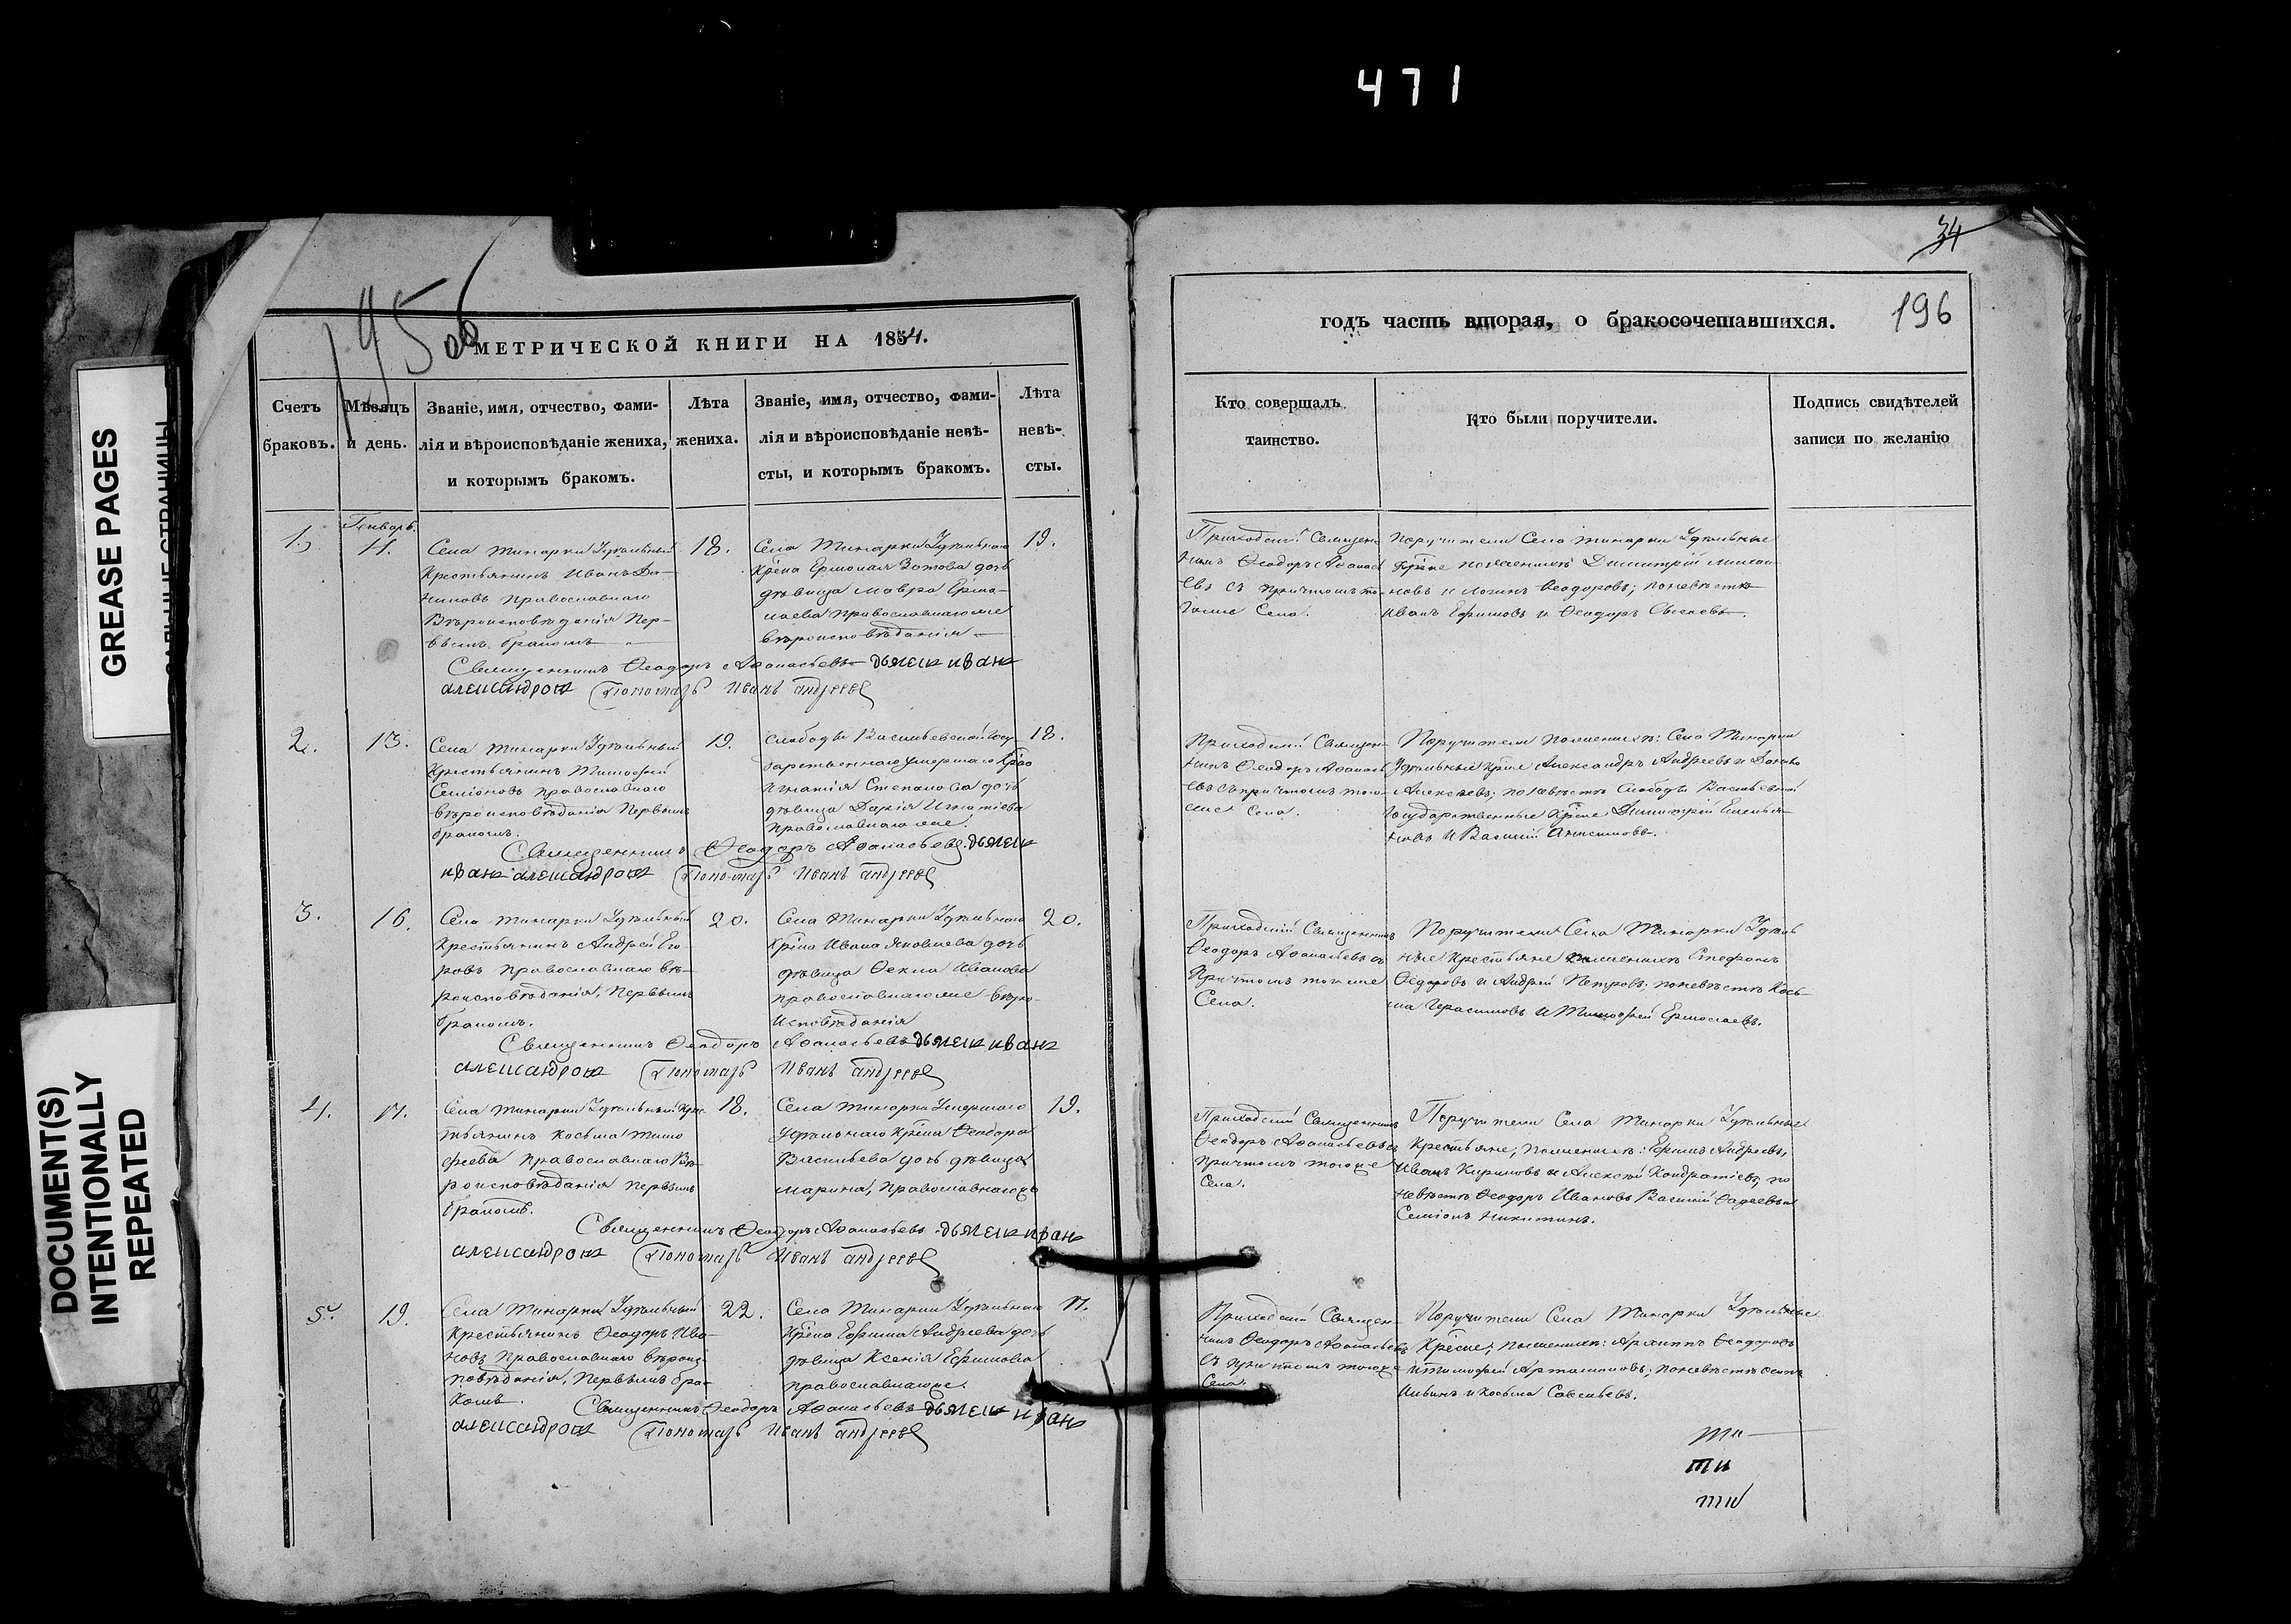 471
34
195 об
МЕТРИЧЕСКОЙ КНИГИ НА 1854.
Счетъ браковъ.
Мѣсяцъ и день.
Званіе, имя, отчество, фами-
лія и вѣроисповѣданіе жениха,
и которымъ бракомъ.
Лѣта
жениха.
Званіе, имя, отчество, фами-
лія и вѣроисповѣданіе невѣ-
сты, и которымъ бракомъ.
Лѣта
невѣ-
сты.
Генварь.
1.
11.
Села Тинарки Удѣльный
Крестьянинъ Иванъ Да-
ниловъ Православнаго
Вѣроисповѣданія Пер-
вымъ бракомъ
18.
Села Тинарки Удѣльнаго
Крѣна Ермолая Зотова дочь
дѣвица Мавра Ермо-
лаева Православнаго же
вѣроисповѣданія
19.
Священникъ Ѳеодоръ Аѳанасьевъ дьячекъ иванъ
александровъ Пономарь Иванъ андреевъ
2.
13.
Села Тинарки Удѣльный
Крестьянинъ Тимофей
Семіоновъ православнаго
вѣроисповѣданія Первымъ
бракомъ.
19.
Слободы Васильевской Госу
дарственнаго умершаго Крѣна
Игнатія Степанова дочь
дѣвица Дарія Игнатіева
православнаго же
18.
Священникъ Ѳеодоръ Аѳанасьевъ. дьячекъ
иванъ александровъ Пономарь Иванъ андреевъ
3.
16.
Села Тинарки Удѣльный
Крестьянинъ Андрей Его
ровъ Православнаго вѣ-
роисповѣданія, Первымъ
бракомъ.
20.
Села Тинарки Удѣльнаго
Крѣна Ивана Яковлева дочь
дѣвица Ѳекла Иванова
православнаго же вѣро-
исповѣданія
20.
Священникъ Ѳеодоръ Аѳанасьевъ дьячекъ иванъ
александровъ Пономарь Иванъ андреевъ
4.
17.
Села Тинарки Удѣльный Крес
тьянинъ Косьма Тимо
феевъ православнаго Вѣ-
роисповѣданія Первымъ
бракомъ.
18.
Села Тинарки Умершаго
Удѣльнаго Крѣна Ѳеодора
Васильева дочь дѣвица
Марина, Православнагоже
19.
Священникъ Ѳеодоръ Аѳанасьевъ дьячекъ иванъ
александровъ Пономарь Иванъ андреевъ
5.
19.
Села Тинарки Удѣльный
Крестьянинъ Ѳеодоръ Ива-
новъ Православнаго вѣроис-
повѣданія, Первымъ бра-
комъ.
22.
Села Тинарки Удѣльнаго
Крѣна Ефима Андреева дочь
дѣвица Ксенія Ефимова
православнагоже.
17.
Священникъ Ѳеодоръ Аѳанасьевъ дьячекъ иванъ
александровъ Пономарь Иванъ андреевъ
годъ часть вторая, о бракосочетавшихся.
196
Кто совершалъ
таинство.
Кто были поручители.
Подпись свидѣтелей
записи по желанію
Приходскій Священ-
никъ Ѳеодоръ Аѳанась
евъ съ причтомъ то-
гоже Села.
Поручители Села Тинарки Удѣльные
Крѣне по женихѣ Димитрій
новъ и Логинъ Ѳеодоровъ; по невѣстѣ
Иванъ Ефимовъ и Ѳеодоръ
Приходскій Священ-
никъ Ѳеодоръ Аѳанась
евъ съ причтомъ того
же Села.
Поручители по женихѣ: Села Тинарки
Удѣльные Крѣне Александръ Андреевъ и
Алексѣевъ; по невѣстѣ Слободы Васильевской
Государственные Крѣне Димитрій Емелья-
новъ и Василій
Приходскій Священникъ
Ѳеодоръ Аѳанасьевъ съ
Причтомъ тогоже
Села.
Поручители Села Тинарки Удѣль
ные Крестьяне по женихѣ Стефанъ
Ѳедоровъ и Андрей Петровъ; по невѣстѣ Кось-
ма Герасимовъ и Тимофей Ермолаевъ.
Приходскій Священникъ
Ѳеодоръ Аѳанасьевъ съ
Причтомъ тогоже
Села.
Поручители Села Тинарки Удѣльные
Крестьяне, по женихѣ: Ефимъ Андреевъ,
Иванъ Кириловъ и Алексѣй Кондратіевъ, по
невѣстѣ Ѳеодоръ Ивановъ Василій Ѳадеевъ и
Семіонъ Никитинъ.
Приходскій Священ-
никъ Ѳеодоръ Аѳанасьевъ
съ причтомъ тогоже
Села.
Поручители Села Тинарки Удѣльные
Крѣсне; по женихѣ: Архиппъ Ѳеодоровъ
и Тимофей Артамоновъ; по невѣстѣ
Ильинъ и Косьма Савельевъ.
GREASE PAGES
DOCUMENT(S)
INTENTIONALLY
REPEATED